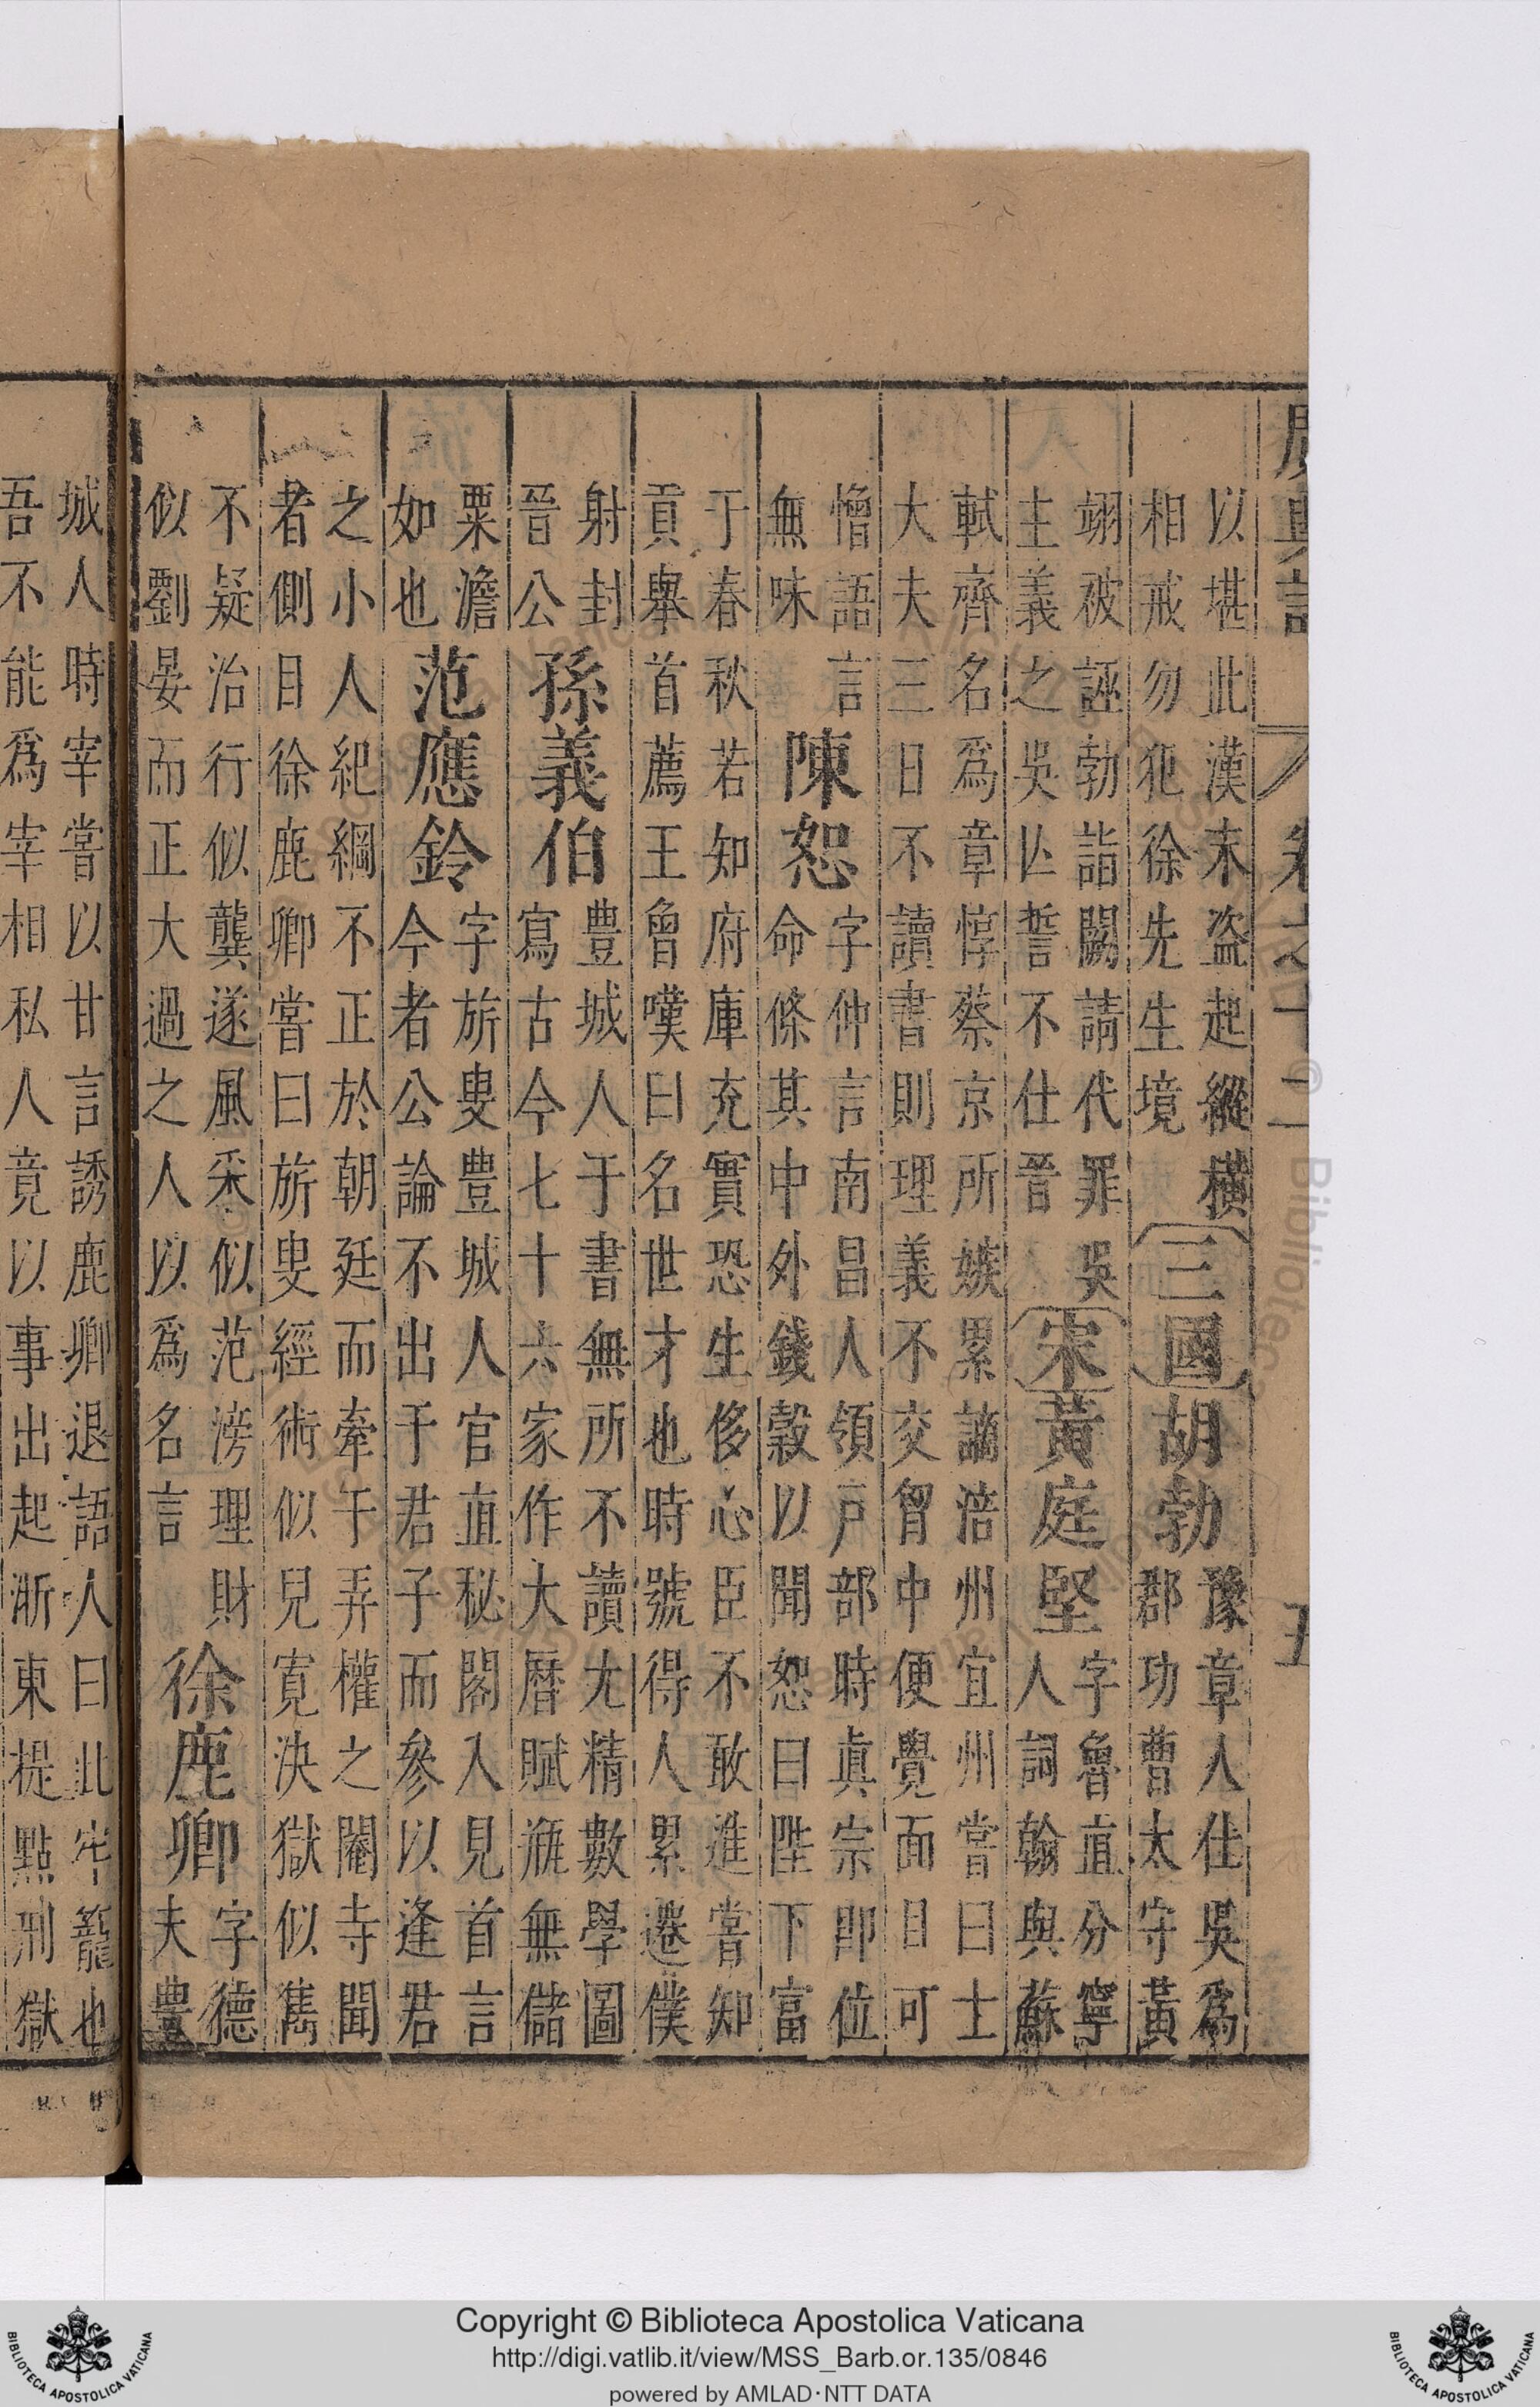 廣輿記 卷之十二 五
以堪此漢末盜起縱橫
相戒勿犯徐先生境
三國 胡勃
豫章人仕吳爲
郡功曹太守黃
翊被誣勃詣闕請代罪吳
主義之吳亾誓不仕晉
宋 黃庭堅
字魯直分寧
人詞翰與蘇
軾齊名爲章惇蔡京所嫉累謫涪州宜州嘗曰士
大夫三日不讀書則理義不交胷中便覺面目可
憎語言
無味
陳恕
字仲言南昌人領戶部時眞宗卽位
命條其中外錢穀以聞恕曰陛下富
于春秋若知府庫充實恐生侈心臣不敢進嘗知
貢舉首薦王曾嘆曰名世才也時號得人累遷僕
射封
晉公
孫義伯
豊城人于書無所不讀尤精數學圖
寫古今七十六家作大曆賦瓶無儲
粟澹
如也
范應鈴
字旂叟豊城人官直秘閣入見首言
今者公論不出于君子而參以逢君
之小人紀綱不正於朝廷而牽于弄權之閹寺聞
者側目徐鹿卿嘗曰旂叟經術似兒寬決獄似雋
不疑治行似龔遂風采似范滂理財
似劉晏而正大過之人以爲名言
徐鹿卿
字德
夫豊
城人時宰嘗以甘言誘鹿卿退語人曰此牢籠也
吾不能爲宰相私人竟以事出起浙東提點刑獄
Copyright © Biblioteca Apostolica Vaticana
http://digi.vatlib.it/view/MSS_Barb.or.135/0846
powered by AMLAD·NTT DATA
BIBLIOTECA APOSTOLICA VATICANA
BIBLIOTECA APOSTOLICA VATICANA